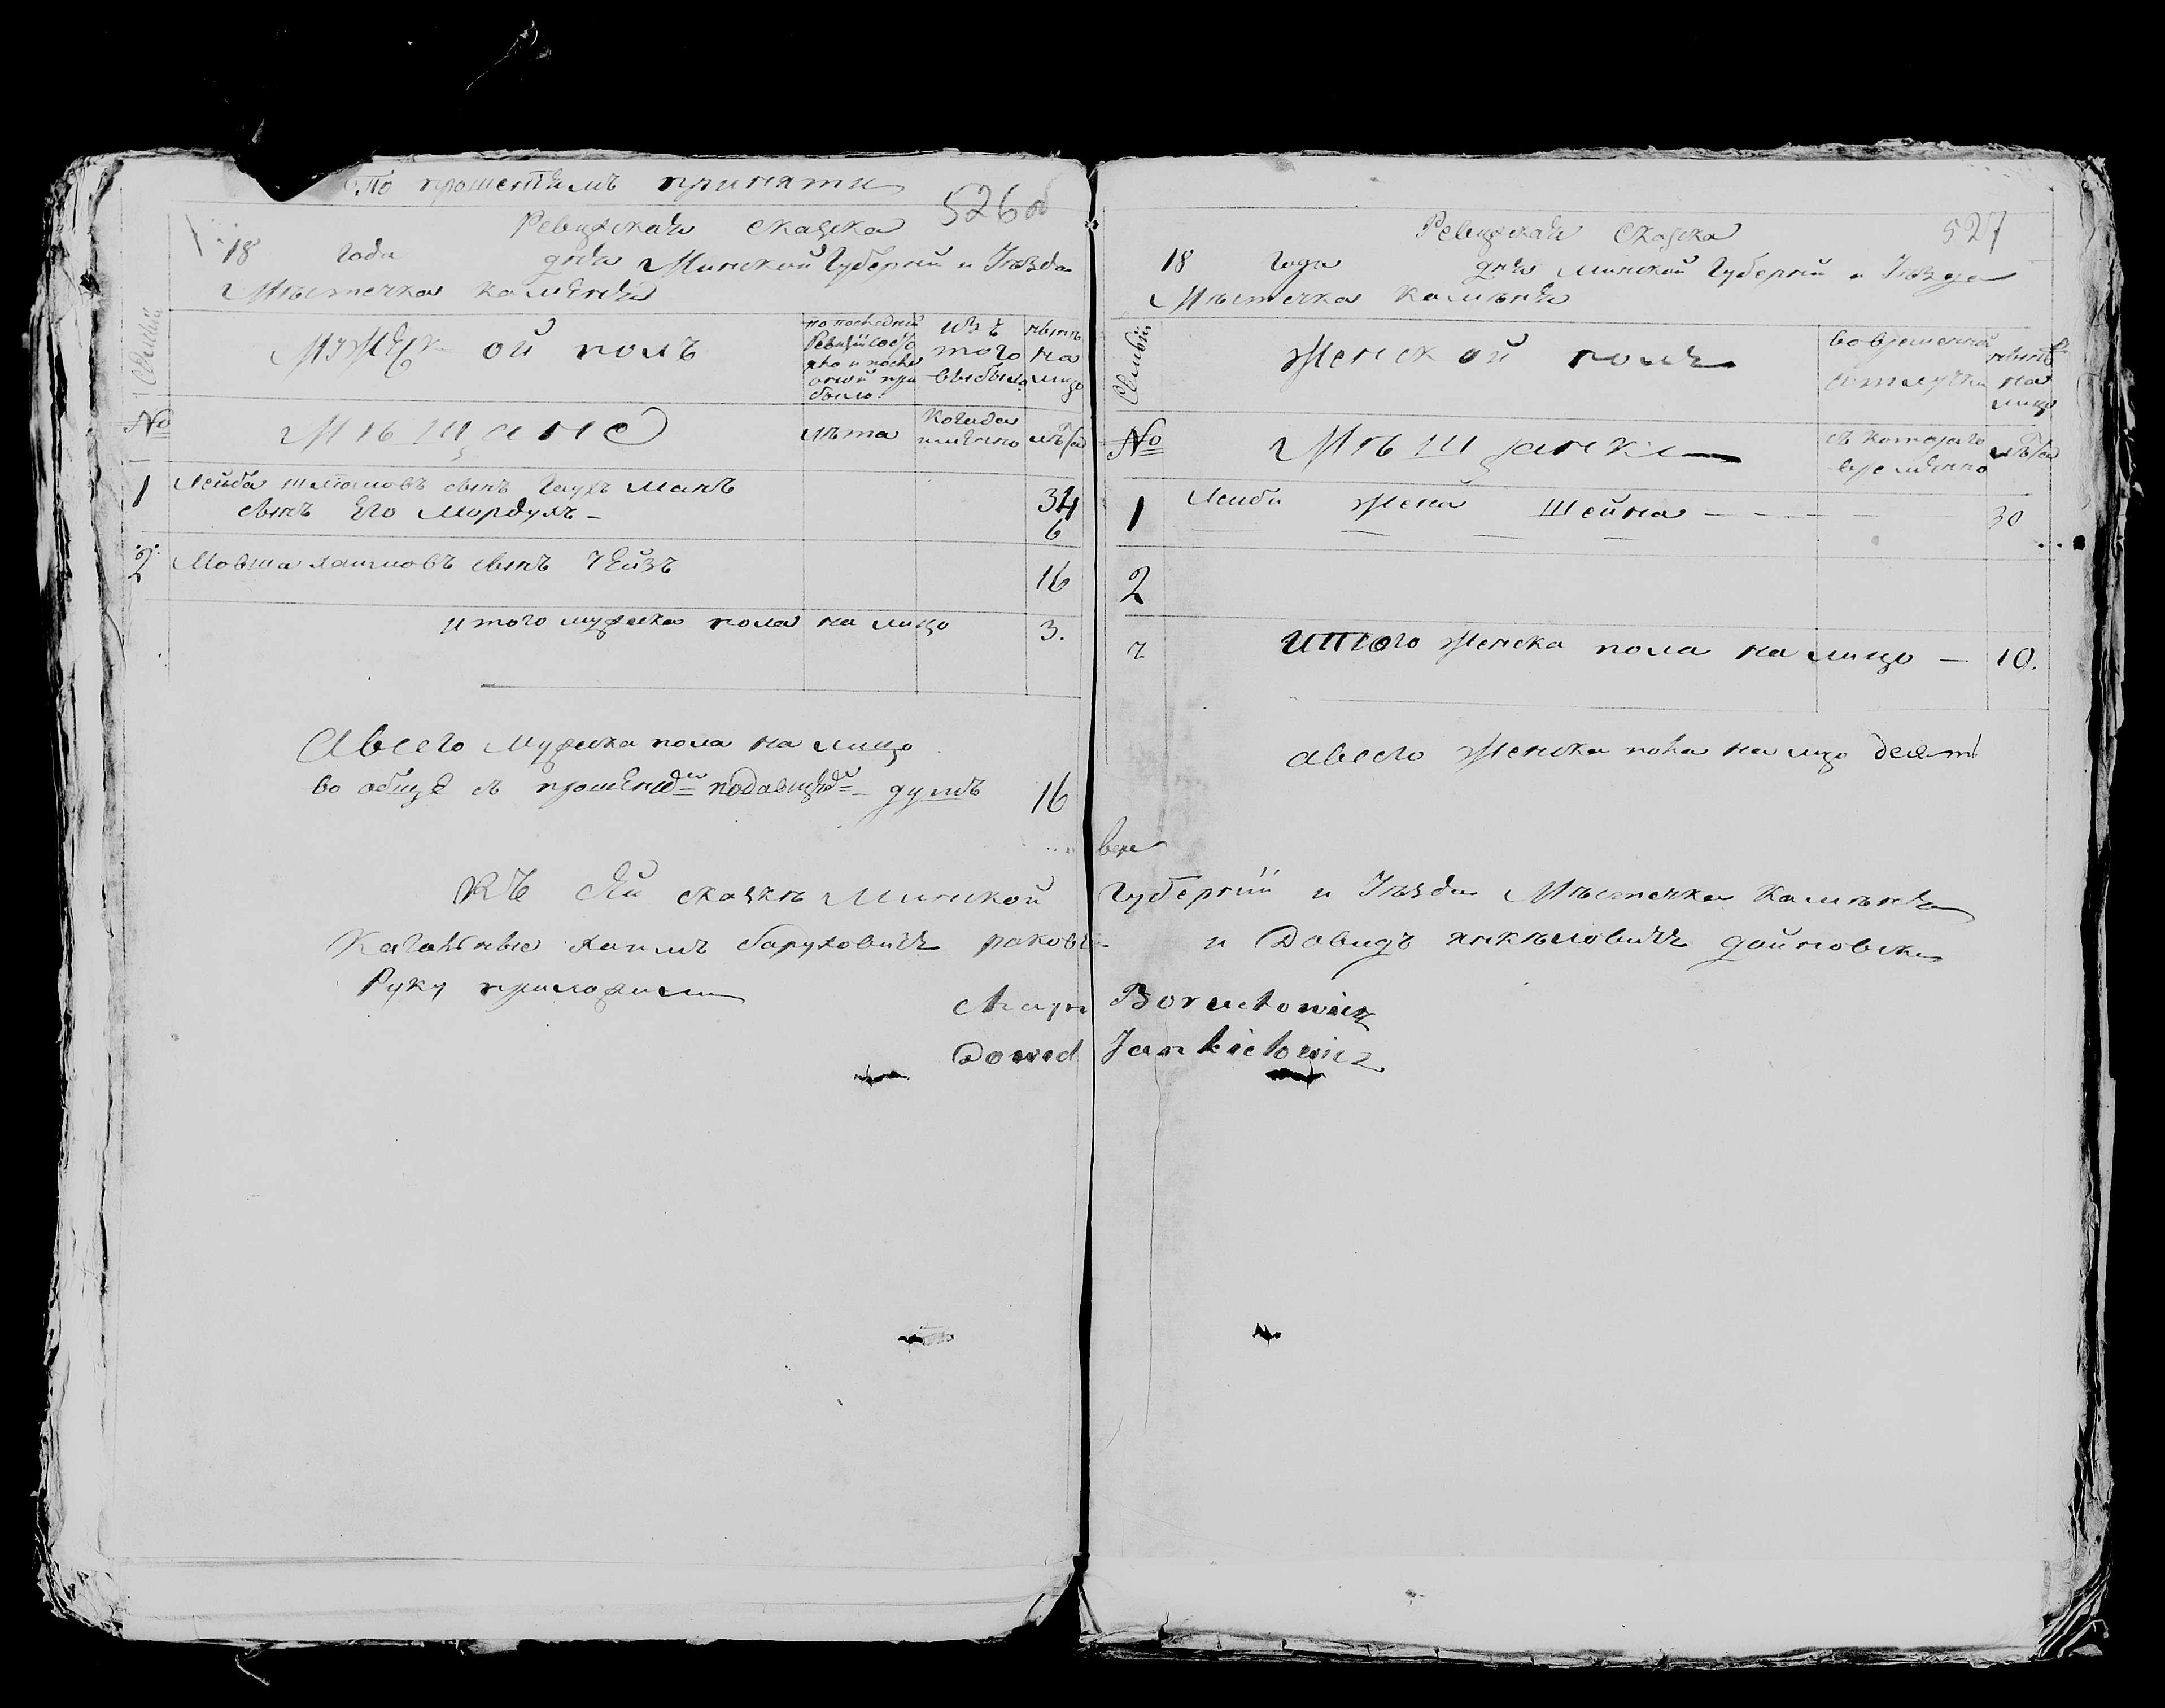 По прошениямъ приняти
526об
Ревижская сказка
18 года дня Минской Губерніи и Уезда
Мѣстечка Каменя
Семьи
Мужеск ой полъ
по последней Ревизіи состояло и после оной при было
изъ того выбыло
нынѣ на лицо
№
Мѣщане
лѣта
когида именно
лѣта
1 Лейба шлiомовъ сынъ Гаухманъ 34
сынъ Его Мордухъ – 6
2 Мовша хаимовъ сынъ 16
итого мужеска пола на лицо 3.
Авсего мужеска пола на лицо
во обще съ душъ 16
527
Ревижская Сказка
18 года дня минской Губерніи и Уезда
Мѣстечка Каменя
Семьи
Женск ой полъ
во временной отлучки
нынѣ на лицо
№
Мѣщанки
съ котораго времянно
лѣта
1 Лейби жена Шейна – 30
2
итого женска пола на лицо – 10.
авсего женска пола на лицо десять
Къ сей сказкѣ Минской Губерніи и Уезда Мѣстечка Каменя
Кагальные хаимъ боруховичъ и Довидъ янкѣловичъ
Руку приложили
Boruchowicz
Dowid Jankielowicz